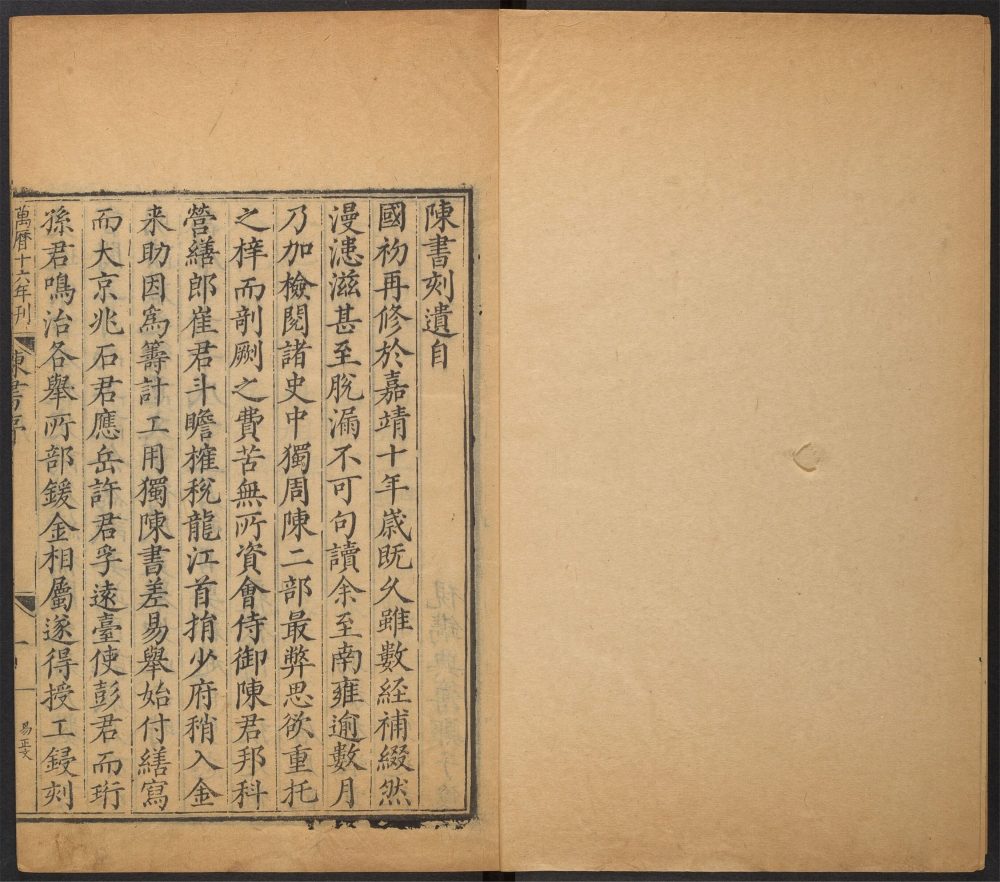 陳書刻遺自
國初再修於嘉靖十年歲既久雖數経補綴然
漫漶滋甚至脫漏不可句讀余至南雍逾數月
乃加檢閱諸史中獨周陳二部最弊思欲重托
之梓而剞劂之費苦無所資會侍御陳君邦科
營繕郎崔君斗瞻榷稅龍江首捐少府稍入金
来助因爲籌計工用獨陳書差易舉始付繕寫
而大京兆石君應岳許君孚遠臺使彭君而珩
孫君鳴治各舉所部鍰金相屬遂得授工鋟刻
萬曆十六年刊
陳書序
一
易正文